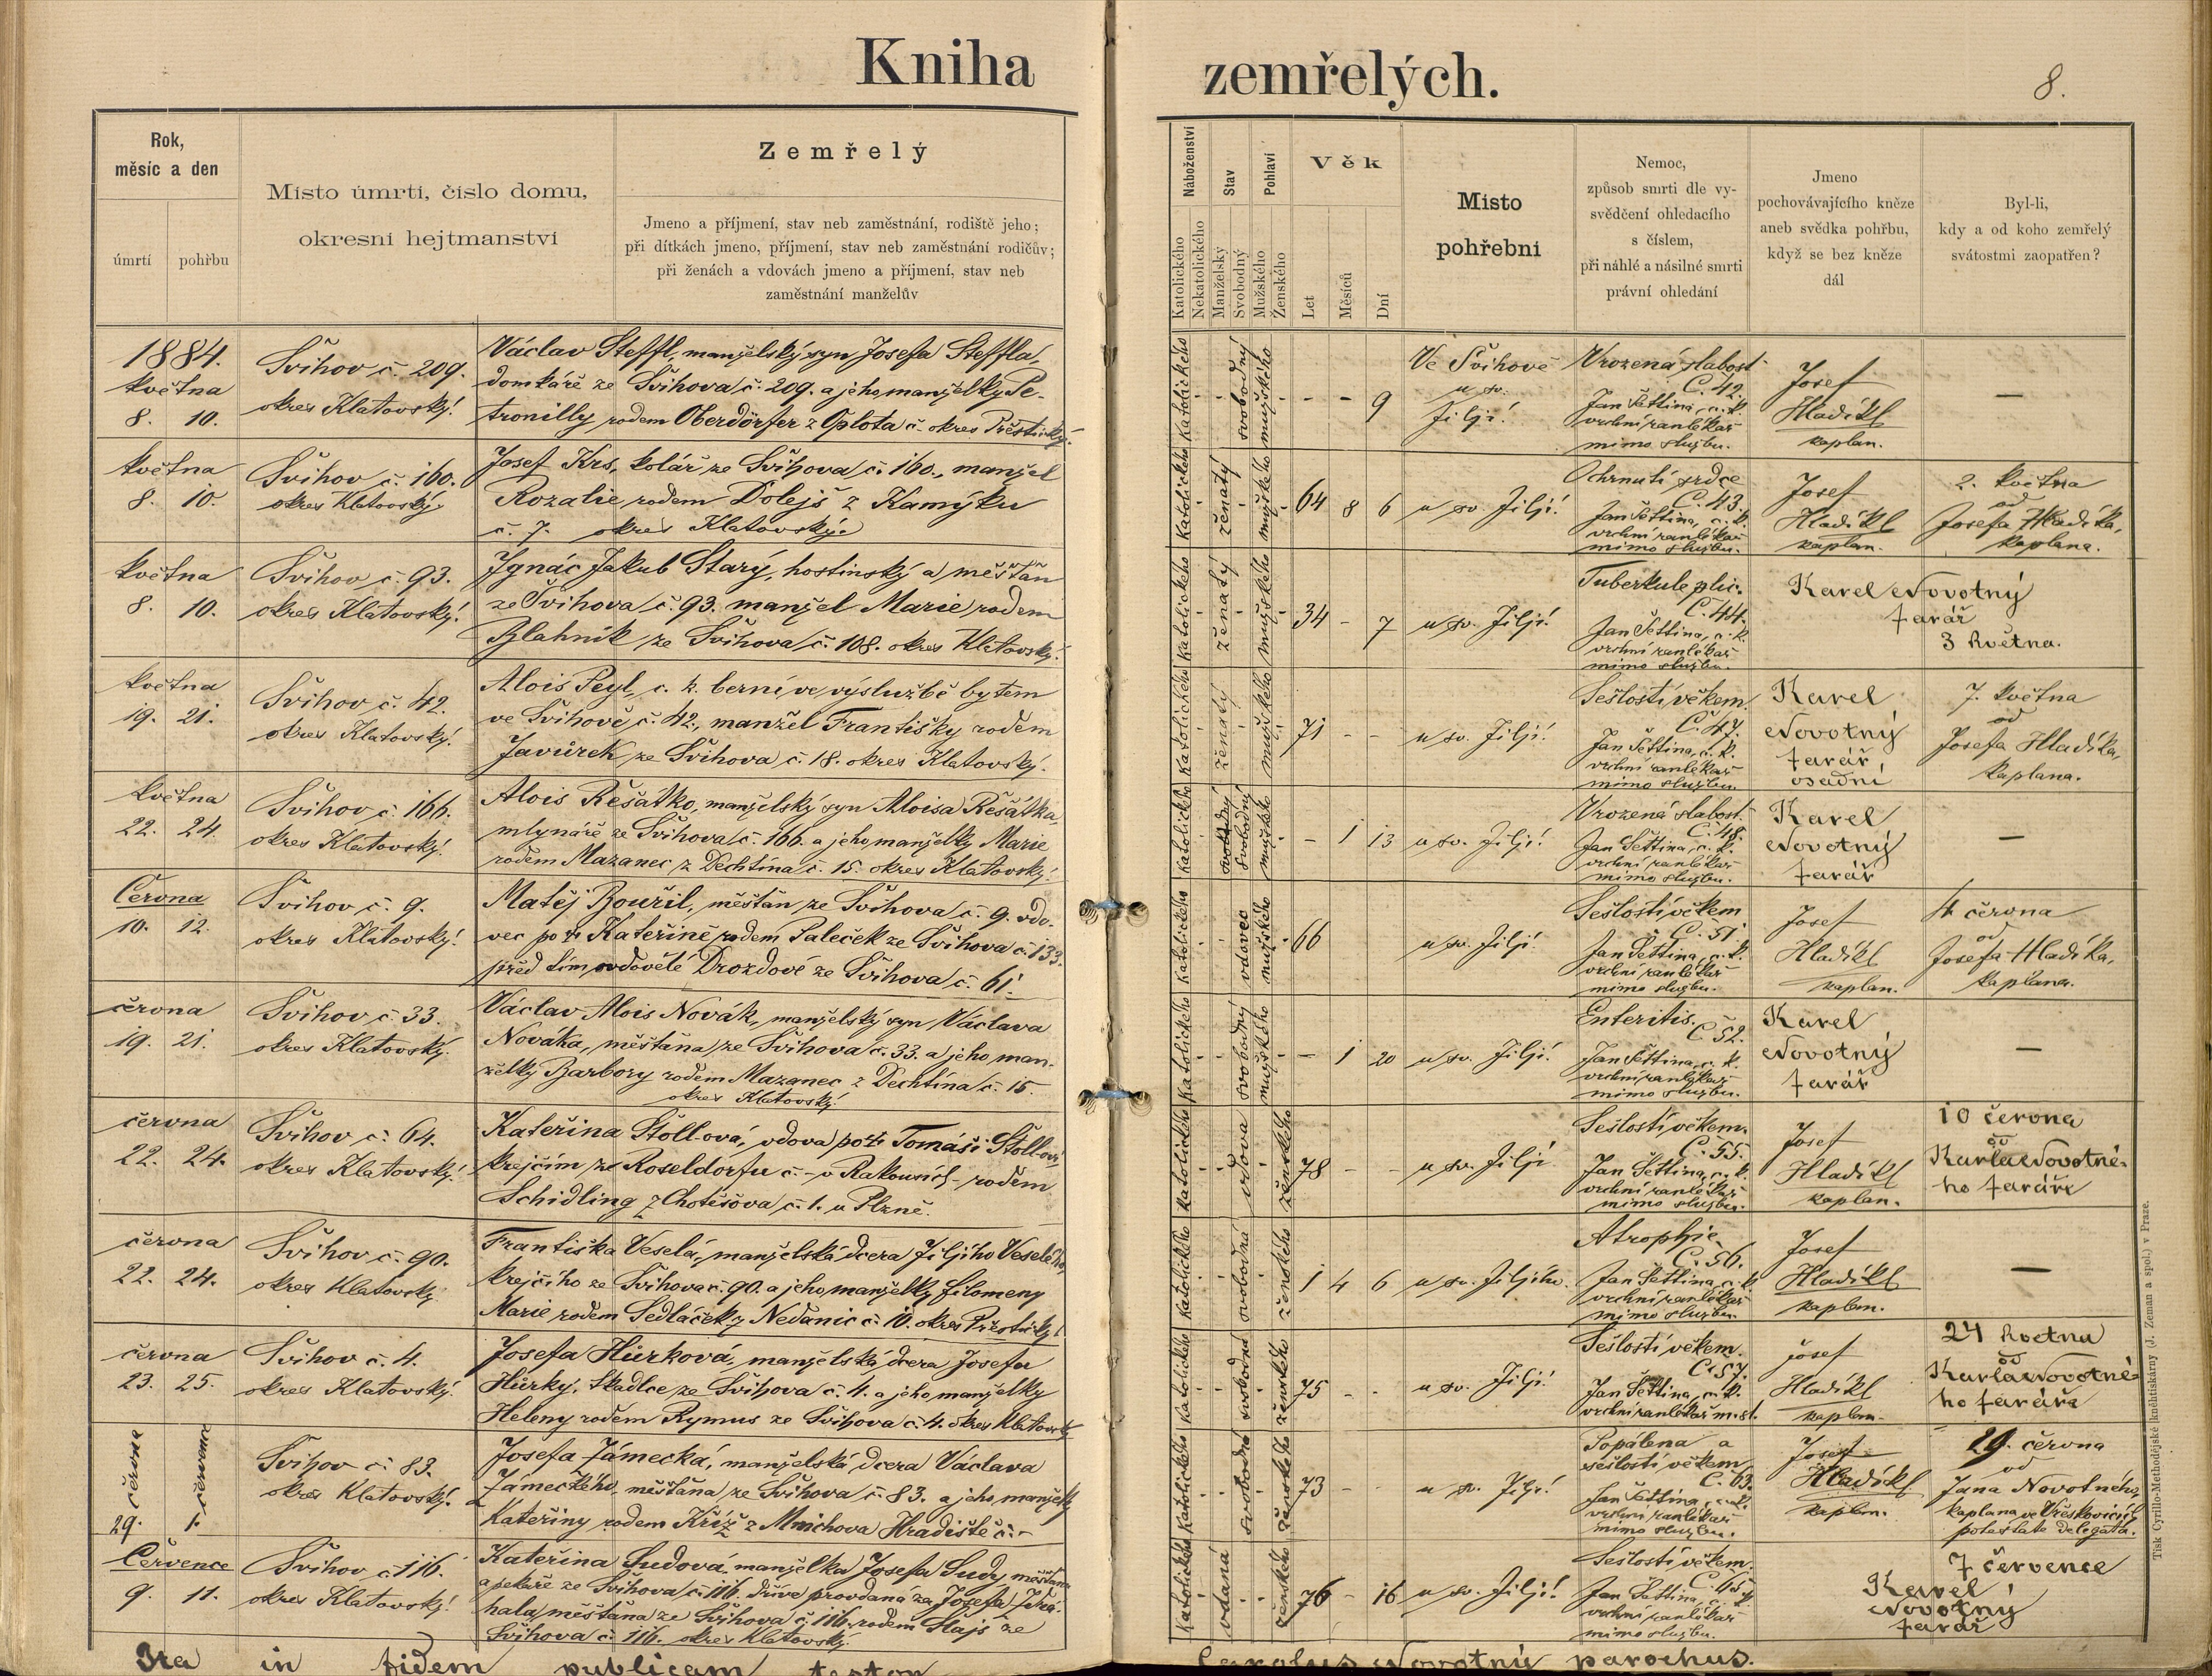 Kniha zemřelých.
8.
Rok,
měsíc a den
úmrtí
pohřbu
Místo úmrtí, číslo domu,
okresní hejtmanství
Zemřelý
Jmeno a příjmení, stav neb zaměstnání, rodiště jeho;
při dítkách jmeno, příjmení, stav neb zaměstnání rodičův;
při ženách a vdovách jmeno a příjmení, stav neb
zaměstnání manželův
Náboženství
Katolického
Nekatolického
Stav
Manželský
Svobodný
Pohlaví
Mužského
Ženského
Věk
Let
Měsíců
Dní
Místo
pohřební
Nemoc,
způsob smrti dle vy-
svědčení ohledacího
s číslem,
při náhlé a násilné smrti
právní ohledání
Jmeno
pochovávajícího kněze
aneb svědka pohřbu,
když se bez kněze
dál
Byl-li,
kdy a od koho zemřelý
svátostmi zaopatřen?
1884.
května
8. 10.
Švihov č. 209.
okres Klatovský.
Václav Steffl, manželský syn Josefa Steffla,
domkáře ze Švihova č. 209. a jeho manželky Pe-
tronilly, rodem Oberdörfer z Oplota č. - okres Přeštický.
katolického svobodný mužského - - 9
Ve Švihově
u sv.
Jiljí.
Vrozená slabost
Č. 42.
Jan Šettina, c. k.
vrchní ranlékař
mimo službu.
Josef
Hladík
kaplan.
—
května
8. 10.
Švihov č. 160.
okres Klatovský.
Josef Krs, kolář ze Švihova č. 160., manžel
Rozalie, rodem Dolejš z Kamýku
č. 7. okres Klatovský.
katolického ženatý mužského 64 8 6 u sv. Jiljí.
Ochrnutí srdce
Č. 43.
Jan Šettina, c. k.
vrchní ranlékař
mimo službu.
Josef
Hladík
kaplan.
2. května
od
Josefa Hladíka,
kaplana.
května
8. 10.
Švihov č. 93.
okres Klatovský.
Ignác Jakub Starý, hostinský a měšťan
ze Švihova č. 93. manžel Marie rodem
Blahník ze Švihova č. 108. okres Klatovský.
katolického ženatý mužského 34 - 7 u sv. Jiljí.
Tuberkule plic.
Č. 44.
Jan Šettina, c. k.
vrchní ranlékař
mimo službu.
Karel Novotný
farář
3 května.
května
19. 21.
Švihov č. 42.
okres Klatovský.
Alois Peyl, c. k. berní ve výslužbě bytem
ve Švihově č. 42., manžel Františky rodem
Javůrek ze Švihova č. 18. okres Klatovský.
katolického ženatý mužského 71 - - u sv. Jiljí.
Sešlostí věkem.
Č. 47.
Jan Šettina, c. k.
vrchní ranlékař
mimo službu.
Karel
Novotný
farář
osadní
7. května
od
Josefa Hladíka,
kaplana.
května
22. 24.
Švihov č. 166.
okres Klatovský.
Alois Řešátko, manželský syn Aloisa Řešátka,
mlynáře ze Švihova č. 166. a jeho manželky Marie
rodem Mazanec z Dechtína č. 15. okres Klatovský.
katolického svobodný mužského - 1 13 u sv. Jiljí.
Vrozená slabost.
Č. 48.
Jan Šettina, c. k.
vrchní ranlékař
mimo službu.
Karel
Novotný
farář
—
Června
10. 12.
Švihov č. 9.
okres Klatovský.
Matěj Bouřil, měšťan ze Švihova č. 9. vdo-
vec po † Kateřině rodem Paleček ze Švihova č. 133.
před tím ovdovělé Drozdové ze Švihova č. 61.
katolického vdovec mužského 66 u sv. Jiljí.
Sešlostí věkem
Č. 51.
Jan Šettina, c. k.
vrchní ranlékař
mimo službu.
Josef
Hladík
kaplan.
4 června
od
Josefa Hladíka,
kaplana.
června
19. 21.
Švihov č. 33.
okres Klatovský.
Václav Alois Novák, manželský syn Václava
Nováka, měšťana ze Švihova č. 33. a jeho man-
želky Barbory rodem Mazanec z Dechtína č. 15.
okres Klatovský.
katolického svobodný mužského - 1 20 u sv. Jiljí.
Enteritis.
Č. 52.
Jan Šettina, c. k.
vrchní ranlékař
mimo službu.
Karel
Novotný
farář
—
června
22. 24.
Švihov č. 64.
okres Klatovský.
Kateřina Štoll-ová, vdova po † Tomáši Štollovi,
krejčím ze Roseldorfu č. - v Rakousích - rodem
Schidling z Chotěšova č. 1. u Plzně.
katolického vdova ženského 78 - - u sv. Jiljí
Sešlostí věkem.
Č. 55.
Jan Šettina, c. k.
vrchní ranlékař
mimo službu.
Josef
Hladík
kaplan.
10 června
od
Karla Novotné-
ho faráře
června
22. 24.
Švihov č. 90.
okres Klatovský
Františka Veselá, manželská dcera Jiljího Veselého,
krejčího ze Švihova č. 90. a jeho manželky Filomeny
Marie rodem Sedláček z Nedanic č. 10. okres Přeštický.
katolického svobodná ženského 1 4 6 u sv. Jiljího.
Atrophie
Č. 56.
Jan Šettina, c. k.
vrchní ranlékař
mimo službu.
Josef
Hladík
kaplan.
—
června
23. 25.
Švihov č. 4.
okres Klatovský.
Josefa Hůrková, manželská dcera Josefa
Hůrky, tkadlce ze Švihova č. 4. a jeho manželky
Heleny rodem Rymus ze Švihova č. 4. okres Klatovský
katolického svobodná ženského 75 - - u sv. Jiljí.
Sešlostí věkem.
Č. 57.
Jan Šettina, c. k.
vrchní ranlékař m. sl.
Josef
Hladík
kaplan.
24 května
od
Karla Novotné-
ho faráře
června července
29. 1.
Švihov č. 83.
okres Klatovský.
Josefa Jámecká, manželská dcera Václava
Jámeckého, měšťana ze Švihova č. 83. a jeho manželky
Kateřiny rodem Kříž z Mnichova Hradiště č. -
katolického svobodná ženského 73 - - u sv. Jiljí.
Popálena a
sešlostí věkem
Č. 63.
Jan Šettina, c. k.
vrchní ranlékař
mimo službu.
Josef
Hladík
kaplan.
29. června
od
Jana Novotného,
kaplana ve Vřeskovicích
potestate delegata.
Července
9. 11.
Švihov č. 116.
okres Klatovský.
Kateřina Sudová, manželka Josefa Sudy, měšťana
a pekaře ze Švihova č. 116. dříve provdaná za Josefa
měšťana ze Švihova č. 116. rodem Šlajs ze
Švihova č. 116. okres Klatovský.
katolického vdaná ženského 76 - 16 u sv. Jiljí.
Sešlostí věkem.
Jan Šettina, c. k.
vrchní ranlékař
mimo službu.
7 července
Karel
Novotný
farář
Ita in fidem publicam testor Carolus Novotný parochus.
Tisk Cyrillo-Methodějské knihtiskárny (J. Zeman a spol.) v Praze.